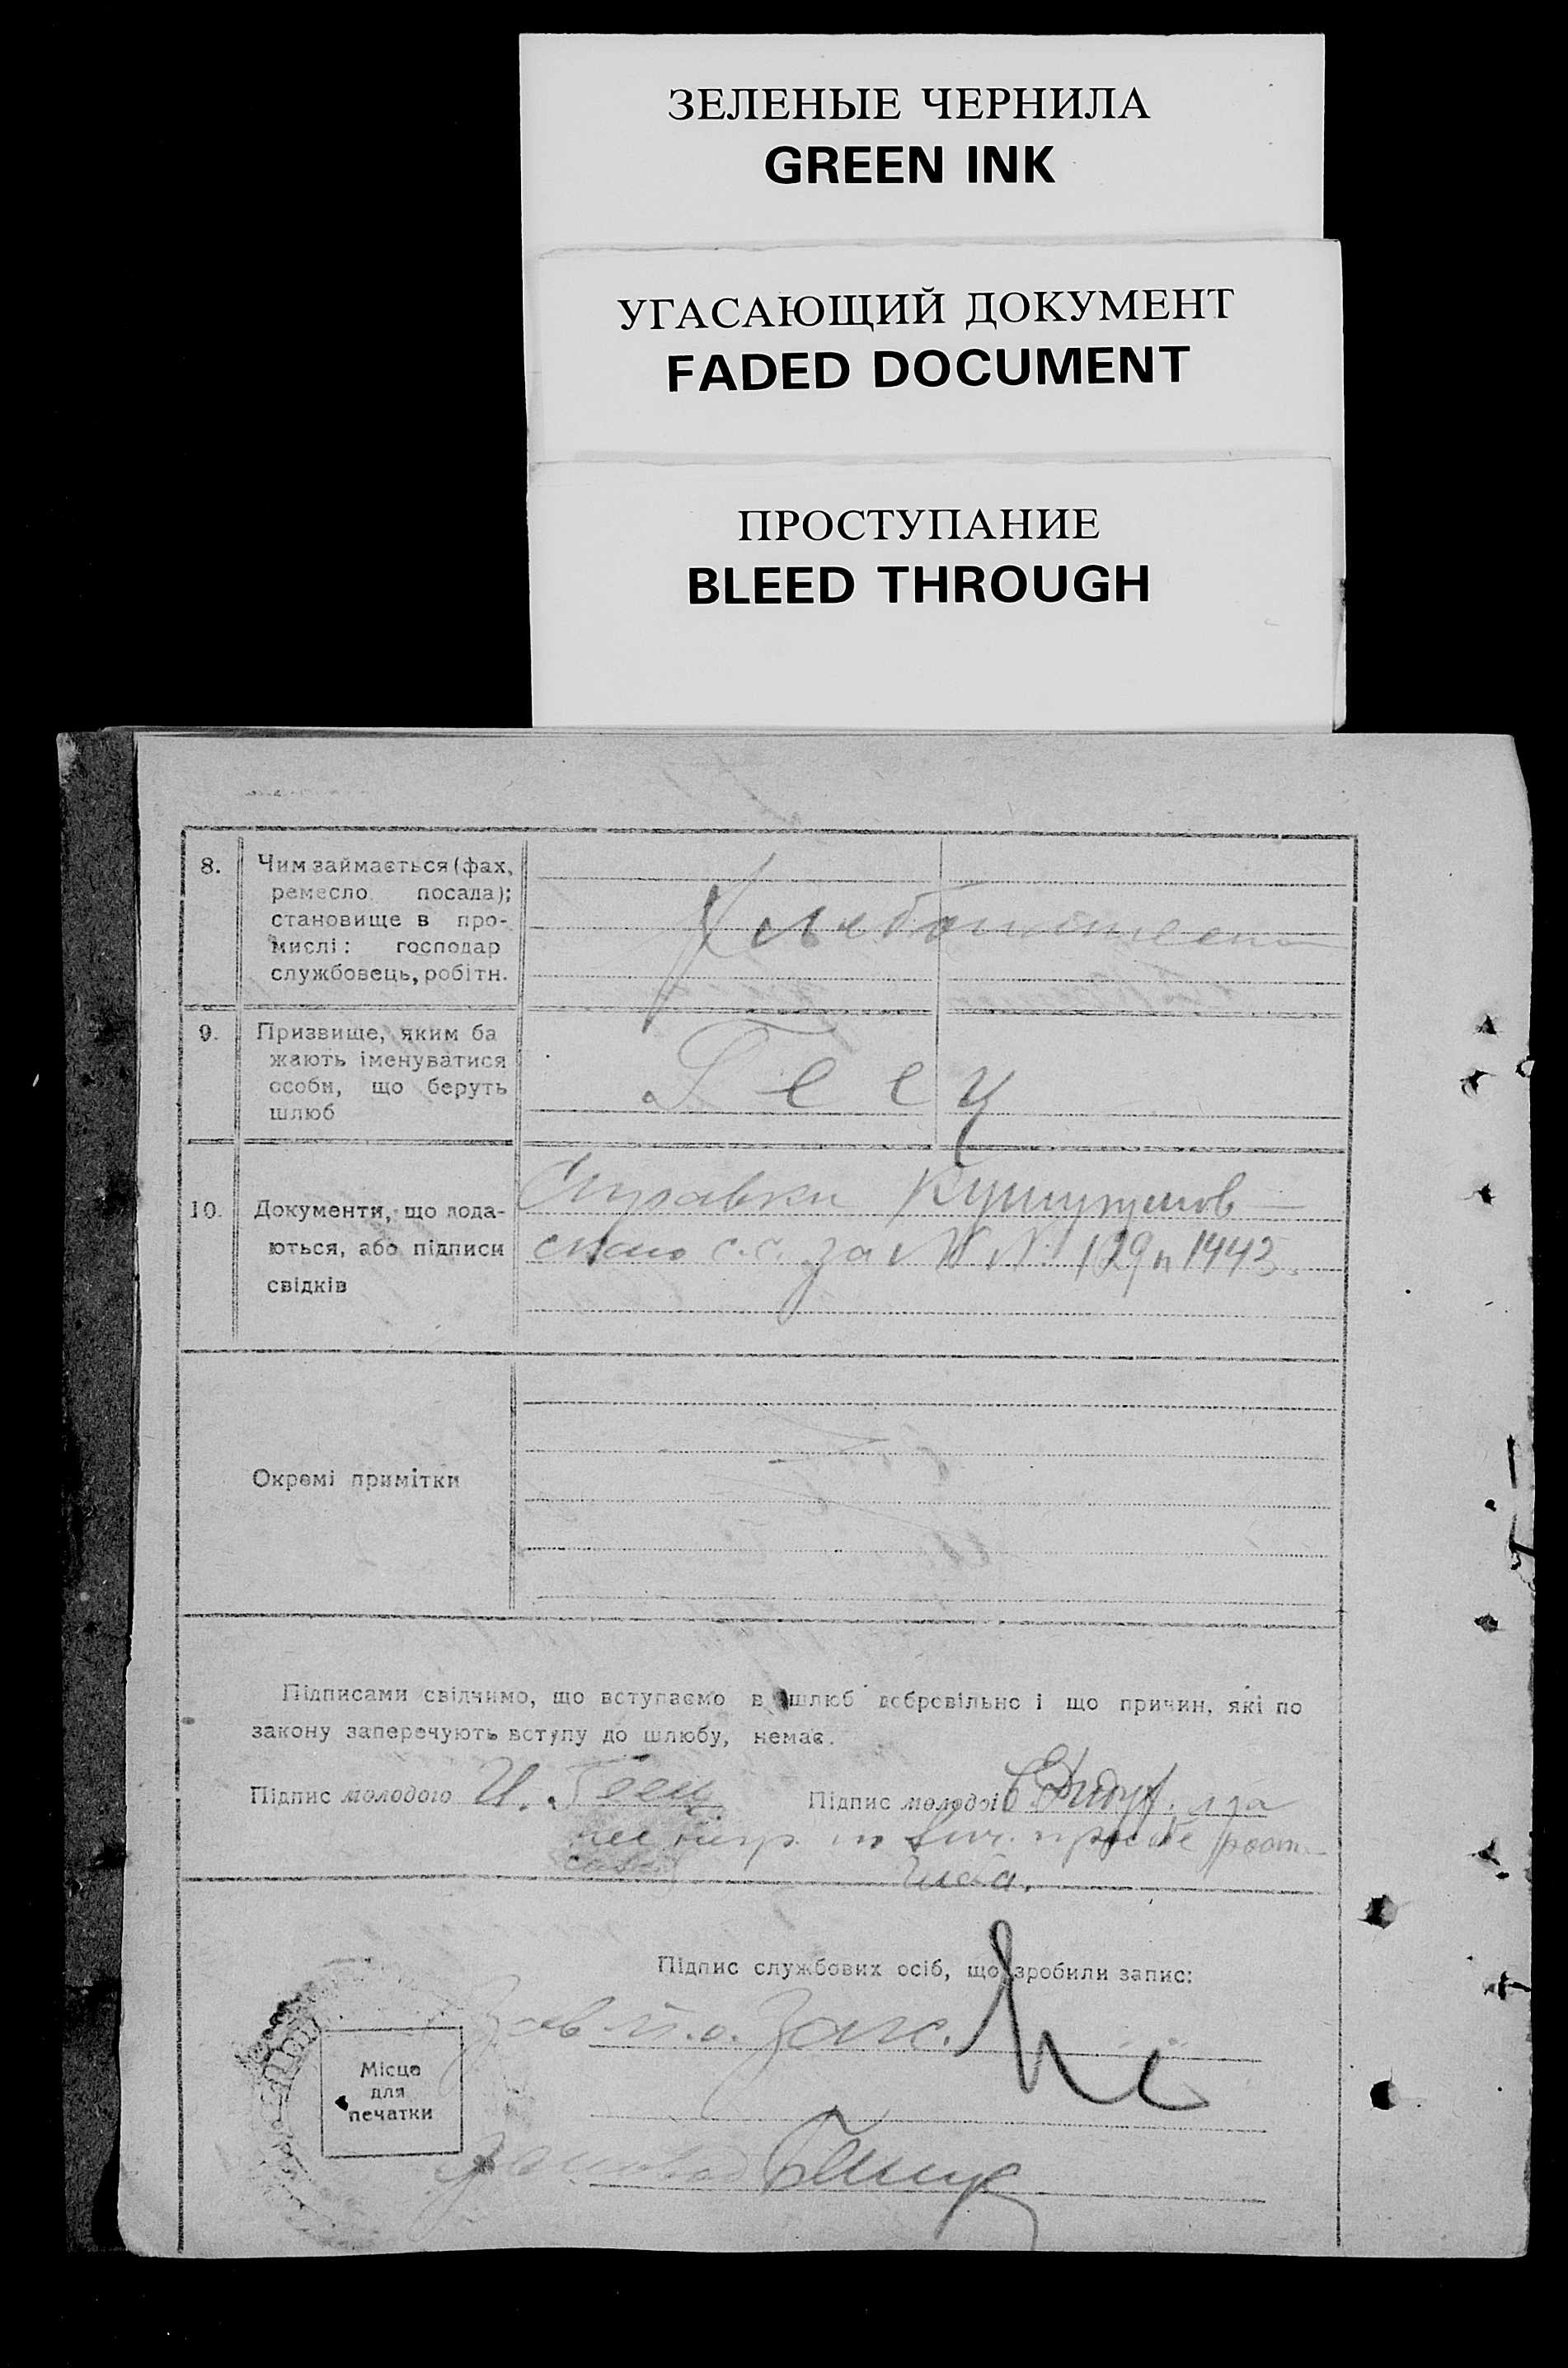 ЗЕЛЕНЫЕ ЧЕРНИЛА
GREEN INK
УГАСАЮЩИЙ ДОКУМЕНТ
FADED DOCUMENT
ПРОСТУПАНИЕ
BLEED THROUGH
8.
Чим займається (фах,
ремесло посада);
становище в про-
мислі: господар
службовець, робітн.
Хлебопашест
9.
Призвище, яким ба
жають іменуватися
особи, що беруть
шлюб
Геец
10.
Документи, що пода-
ються, або підписи
свідків
Справки
ского с.с. за № № 129 и 1443.
Окремі примітки
Підписами свідчимо, що вступаємо в шлюб добровільно і що причин, які по
закону заперечують вступу до шлюбу, немає.
Підпис молодого И. Геец
Підпис молодої за
нее негр. по личн. просьбе
Підпис службових осіб, що зробили запис:
Зав п.о. Загс.
Місце
для
печатки